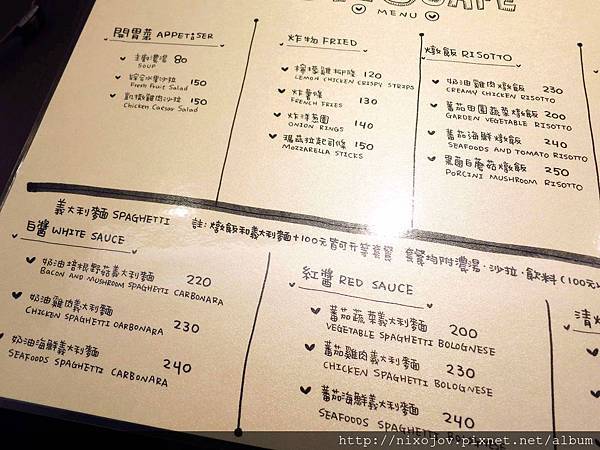 CAFE
MENU
開胃菜 APPETISER
主廚濃湯 80
SOUP
綜合水果沙拉 150
Fresh Fruit Salad
凱撒雞肉沙拉 150
Chicken Caesar Salad
炸物 FRIED
檸檬雞柳條 120
LEMON CHICKEN CRISPY STRIPS
炸薯條 130
FRENCH FRIES
炸洋蔥圈 140
ONION RINGS
瑪茲拉起司條 150
MOZZARELLA STICKS
燉飯 RISOTTO
奶油雞肉燉飯 230
CREAMY CHICKEN RISOTTO
蕃茄田園蔬菜燉飯 200
GARDEN VEGETABLE RISOTTO
蕃茄海鮮燉飯 240
SEAFOODS AND TOMATO RISOTTO
黑菌白蘑菇燉飯 250
PORCINI MUSHROOM RISOTTO
義大利麵 SPAGHETTI 註: 燉飯和義大利麵+100元皆可升等套餐 套餐均附濃湯·沙拉·飲料(100元
白醬 WHITE SAUCE
奶油培根野菇義大利麵 220
BACON AND MUSHROOM SPAGHETTI CARBONARA
奶油雞肉義大利麵 230
CHICKEN SPAGHETTI CARBONARA
奶油海鮮義大利麵 240
SEAFOODS SPAGHETTI CARBONARA
紅醬 RED SAUCE
蕃茄蔬菜義大利麵 200
VEGETABLE SPAGHETTI BOLOGNESE
蕃茄雞肉義大利麵 230
CHICKEN SPAGHETTI BOLOGNESE
蕃茄海鮮義大利麵 240
SEAFOODS SPAGHETTI BOLOGNESE
清
http://nixojov.pixnet.net/album